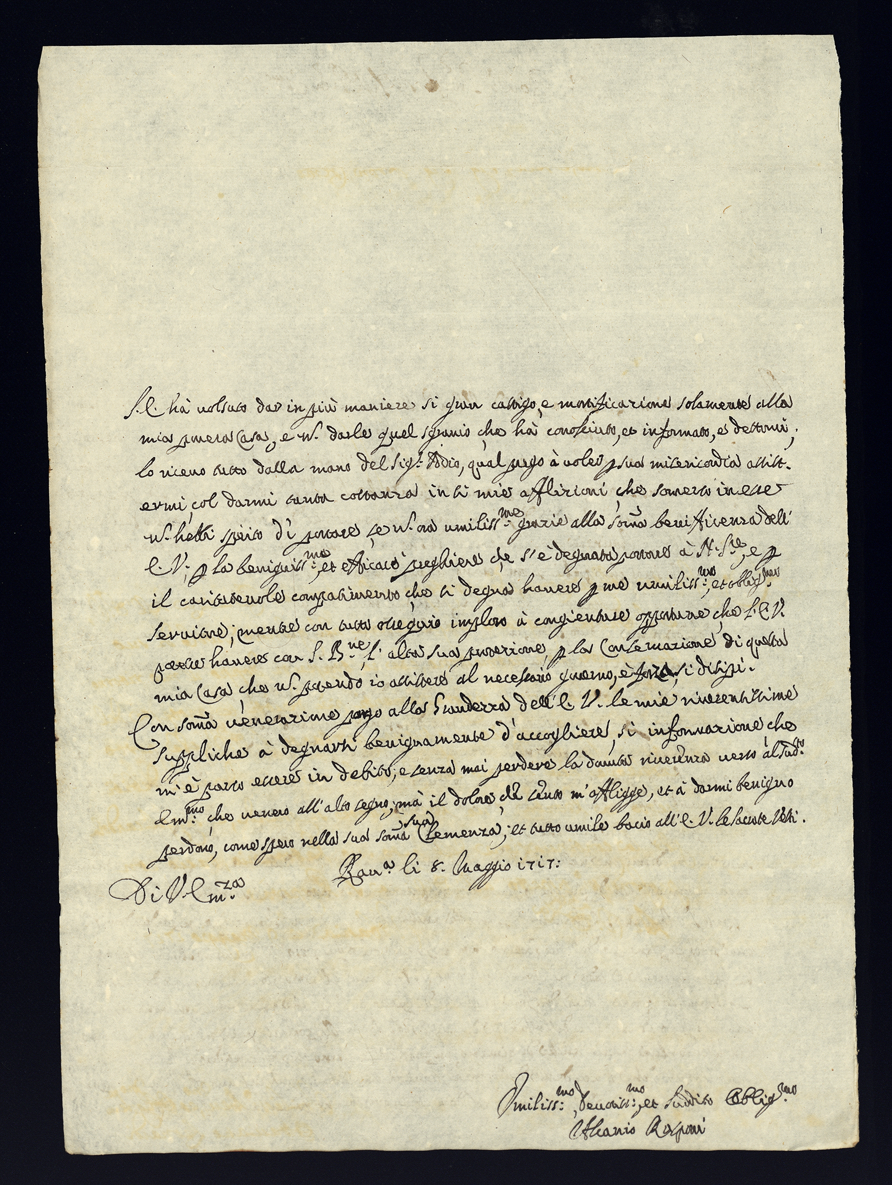 S. E. hà volsuto dar in più maniere si gran castigo, e mortificazione solamente alla
mia povera Casa, e n. darle quel sgravio che hà conosciuto, et informato, e dettomi,
lo ricevo tutto dalla mano del Sig.r Iddio, qual prego à voler p sua misericordia assist-
ermi, col darmi tanta costanza in ti mie afflizioni che somerso in esse
n. hetti spirito di portare umiliss.me grazie alla Som̃a beneficenza dell'
E. V. p la benigniss.ma, et efficace preghiere che s'è degnata portare à N. S.re, e p
il caritatevole compatimento che si degna havere p me umiliss.mo, et oblig.mo
servitore; mentre con tutto ossequio imploro à congienture opportune, che l'E. V.
havere con S. B.ne l'alta sua protezione p la Conservazione di questa
mia Casa, che n. potendo io assistere al necessario governo, è forza, si disipi.
Con som̃a venerazione porgo alla Grandezza dell'E. V. le mie riverentissime
suppliche à degnarsi benignamente d'accogliere, si informazione che
m'è parso essere in debito, e senza mai perdere la dovuta riverenza verso al sud.o
Em.mo che venero all'alto segno; mà il dolore che tanto m'affligge, et à darmi benigno
perdono, come spero nella sua som̃a sua Clemenza; et tutto umile bacio all'E. V. le Sacrate Vesti.
Di V. Em.za
Rav.a li 8. Maggio 1717:
Umiliss.mo, Devotiss.mo, et Suddito Obblig.mo
Rasponi